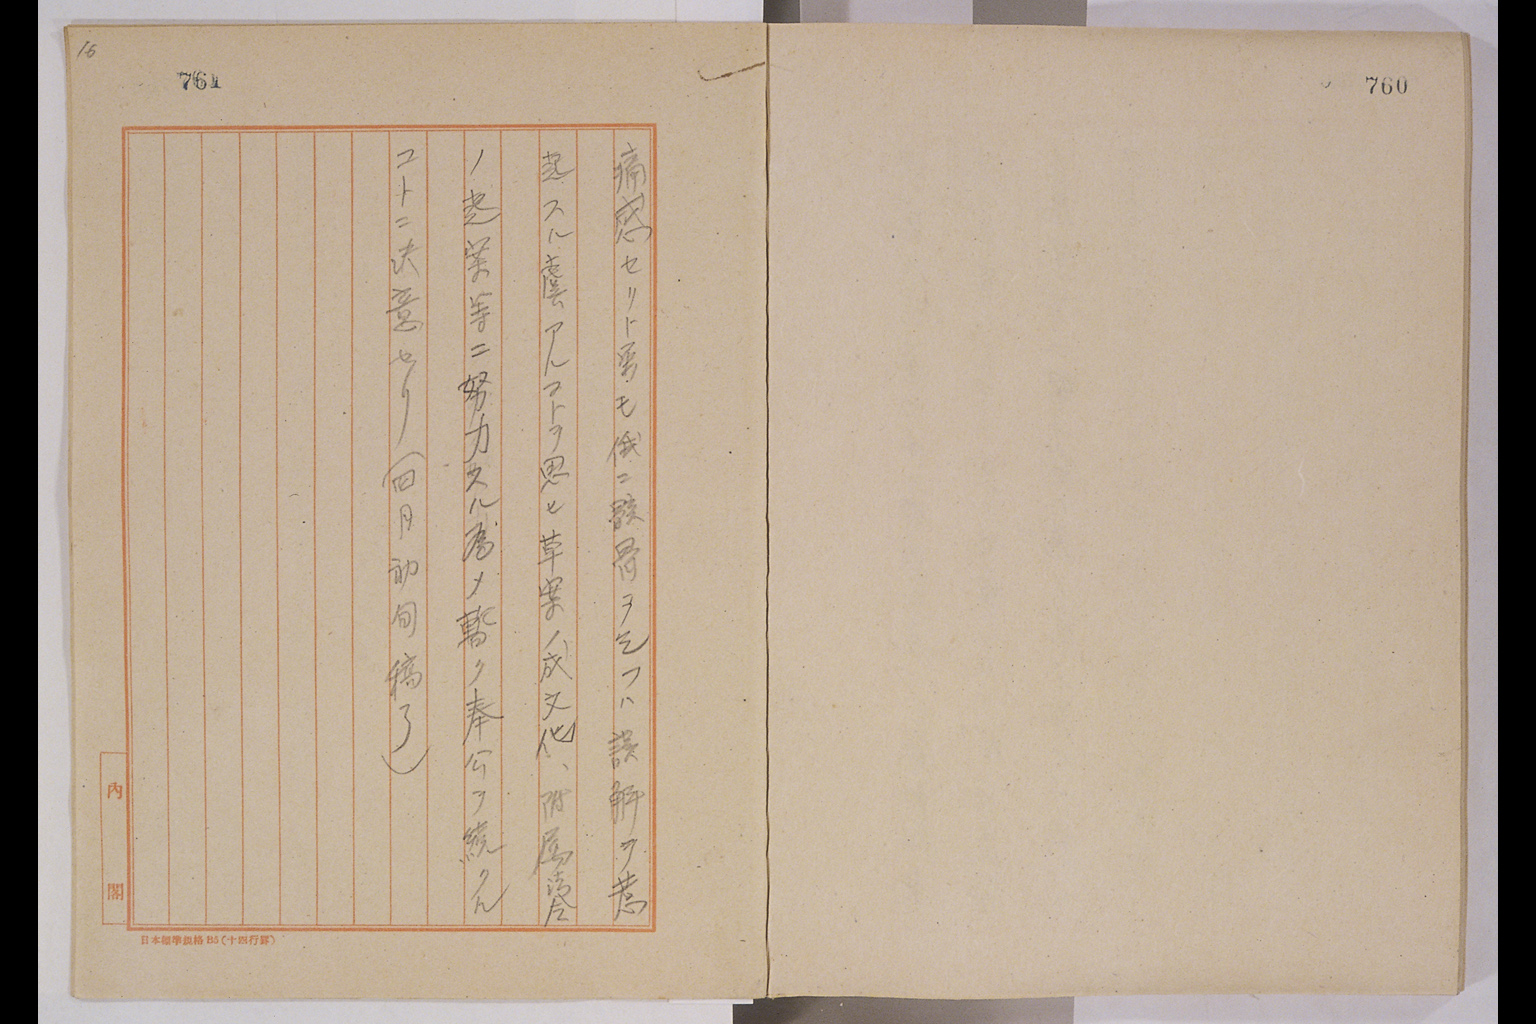 760
16
761
痛感セリト雖モ俄ニ骸骨ヲ乞フハ誤解ヲ惹
起スル虞アルコトヲ思ヒ草案ノ成文化、附属法令
ノ起案等ニ努力スル為メ暫ク奉公ヲ続クル
コトニ決意セリ(四月初旬稿了)
內閣
日本標準規格B5(十四行罫)